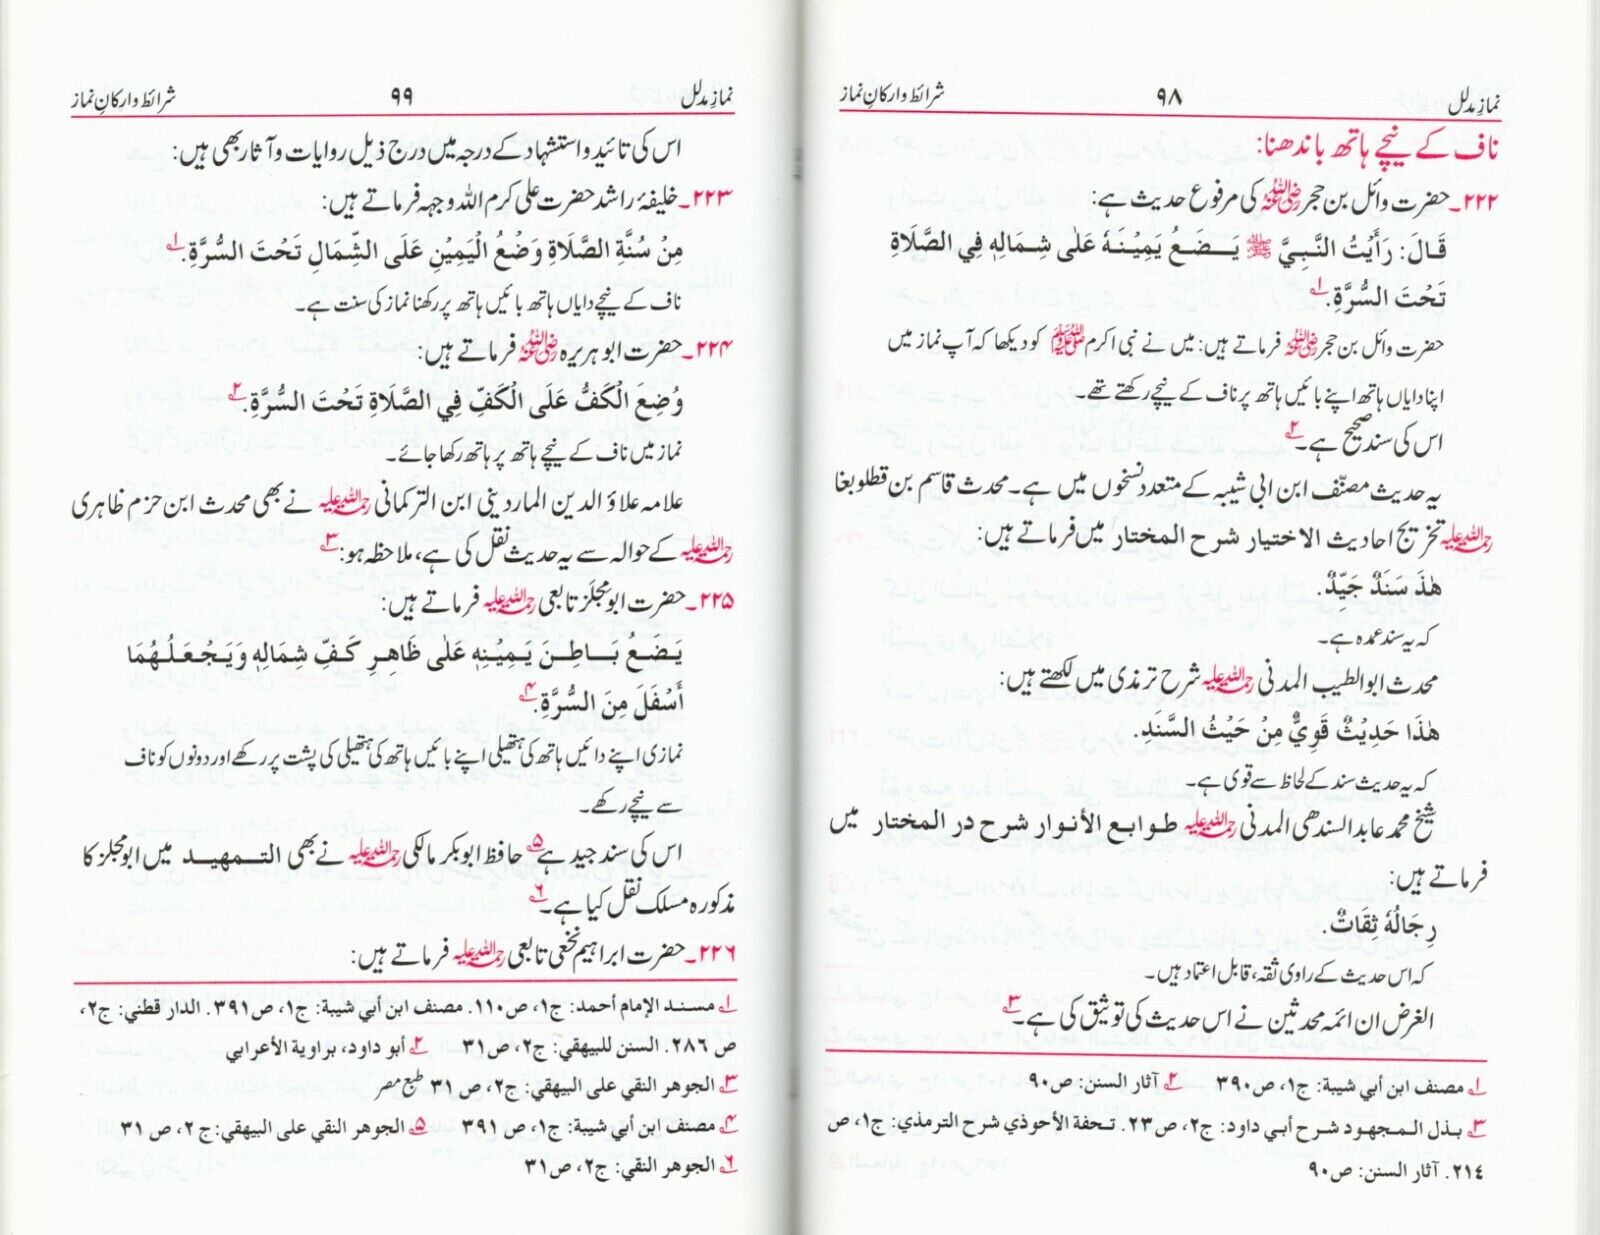 نمازِ مدلل ۹۸ شرائط و ارکانِ نماز
ناف کے نیچے ہاتھ باندھنا:
۲۲۲۔ حضرت وائل بن حجر رضی اللہ عنہ کی مرفوع حدیث ہے:
قَالَ: رَأَيْتُ النَّبِيَّ ﷺ يَضَعُ يَمِيْنَهٗ عَلٰى شِمَالِهٖ فِي الصَّلَاةِ
تَحْتَ السُّرَّةِ.؂۱
حضرت وائل بن حجر رضی اللہ عنہ فرماتے ہیں: میں نے نبی اکرم ﷺ کو دیکھا کہ آپ نماز میں
اپنا دایاں ہاتھ اپنے بائیں ہاتھ پر ناف کے نیچے رکھتے تھے۔
اس کی سند صحیح ہے۔؂۲
یہ حدیث مصنّف ابن ابی شیبہ کے متعدد نسخوں میں ہے۔ محدث قاسم بن قطلوبغا
رحمۃ اللہ علیہ تخریج احادیث الاختیار شرح المختار میں فرماتے ہیں:
هٰذَ سَنَدٌ جَيِّدٌ.
کہ یہ سند عمدہ ہے۔
محدث ابو الطیب المدنی رحمۃ اللہ علیہ شرح ترمذی میں لکھتے ہیں:
هٰذَا حَدِيْثٌ قَوِيٌّ مِنْ حَيْثُ السَّنَدِ.
کہ یہ حدیث سند کے لحاظ سے قوی ہے۔
شیخ محمد عابد السندھی المدنی رحمۃ اللہ علیہ طوابع الأنوار شرح در المختار میں
فرماتے ہیں:
رِجَالُهٗ ثِقَاتٌ.
کہ اس حدیث کے راوی ثقہ، قابل اعتماد ہیں۔
الغرض ان ائمہ محدثین نے اس حدیث کی توثیق کی ہے۔؂۳
؂۱ مصنف ابن أبي شيبة: ج۱، ص۳۹۰ ؂۲ آثار السنن: ص۹۰
؂۳ بذل المجهود شرح أبي داود: ج۲، ص۲۳. تحفة الأحوذي شرح الترمذي: ج۱، ص
۲۱٤. آثار السنن: ص۹۰
نمازِ مدلل ۹۹ شرائط و ارکانِ نماز
اس کی تائید و استشہاد کے درجہ میں درج ذیل روایات و آثار بھی ہیں:
۲۲۳۔ خلیفۂ راشد حضرت علی کرم اللہ وجہہ فرماتے ہیں:
مِنْ سُنَّةِ الصَّلَاةِ وَضْعُ الْيَمِيْنِ عَلَى الشِّمَالِ تَحْتَ السُّرَّةِ.؂۱
ناف کے نیچے دایاں ہاتھ بائیں ہاتھ پر رکھنا نماز کی سنت ہے۔
۲۲۴۔ حضرت ابو ہریرہ رضی اللہ عنہ فرماتے ہیں:
وُضِعَ الْكَفُّ عَلَى الْكَفِّ فِي الصَّلَاةِ تَحْتَ السُّرَّةِ.؂۲
نماز میں ناف کے نیچے ہاتھ پر ہاتھ رکھا جائے۔
علامہ علاؤ الدین الماردینی ابن الترکمانی رحمۃ اللہ علیہ نے بھی محدث ابن حزم ظاہری
رحمۃ اللہ علیہ کے حوالہ سے یہ حدیث نقل کی ہے، ملاحظہ ہو:؂۳
۲۲۵۔ حضرت ابو مجلَز تابعی رحمۃ اللہ علیہ فرماتے ہیں:
يَضَعُ بَاطِنَ يَمِيْنِهٖ عَلٰى ظَاهِرِ كَفِّ شِمَالِهٖ وَيَجْعَلُهُمَا
أَسْفَلَ مِنَ السُّرَّةِ.؂۴
نمازی اپنے دائیں ہاتھ کی ہتھیلی اپنے بائیں ہاتھ کی ہتھیلی کی پشت پر رکھے اور دونوں کو ناف
سے نیچے رکھے۔
اس کی سند جید ہے؂۵ حافظ ابو بکر مالکی رحمۃ اللہ علیہ نے بھی التمهید میں ابو مجلز کا
مذکورہ مسلک نقل کیا ہے۔؂۶
۲۲۶۔ حضرت ابراہیم نخعی تابعی رحمۃ اللہ علیہ فرماتے ہیں:
؂۱ مسند الإمام أحمد: ج۱، ص۱۱۰. مصنف ابن أبي شيبة: ج۱، ص۳۹۱. الدار قطني: ج۲،
ص ۲۸٦. السنن للبيهقي: ج۲، ص ۳۱ ؂۲ أبو داود، براوية الأعرابي
؂۳ الجوهر النقي على البيهقي: ج۲، ص ۳۱ طبع مصر
؂۴ مصنف ابن أبي شيبة: ج۱، ص ۳۹۱ ؂۵ الجوهر النقي على البيهقي: ج ۲، ص ۳۱
؂۶ الجوهر النقي: ج۲، ص۳۱